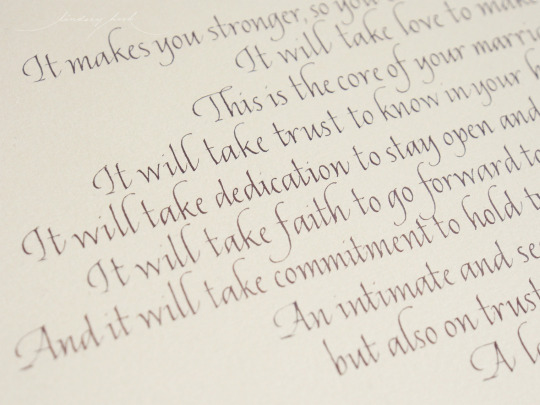 It makes you stronger, so you
It will take love to make
This is the core of your
It will take trust to know in your
It will take dedication to stay open and
It will take faith to go forward to
And it will take commitment to hold
An intimate and
but also on trust
A